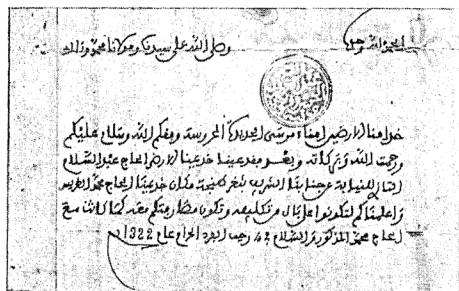 الحمد لله وحده وصلى الله على سيدنا ومولانا محمد وءاله
خدامنا الارضين امناء مرسى الجديدة المحروسة وفقكم الله وسلام عليكم
ورحمت الله وبركاته وبعد فقد عينا خديمنا الارضى الحاج عبد السلام
التازي للنيابة عن جنابنا الشريف بثغر طنجة مكان خديمنا الحاج محمد الطريس
واعلمناكم لتكونوا على بال من تكليفه وتكون معه كما كانت مع
الحاج محمد المذكور والسلام رجب الفرد الحرام عام 1322